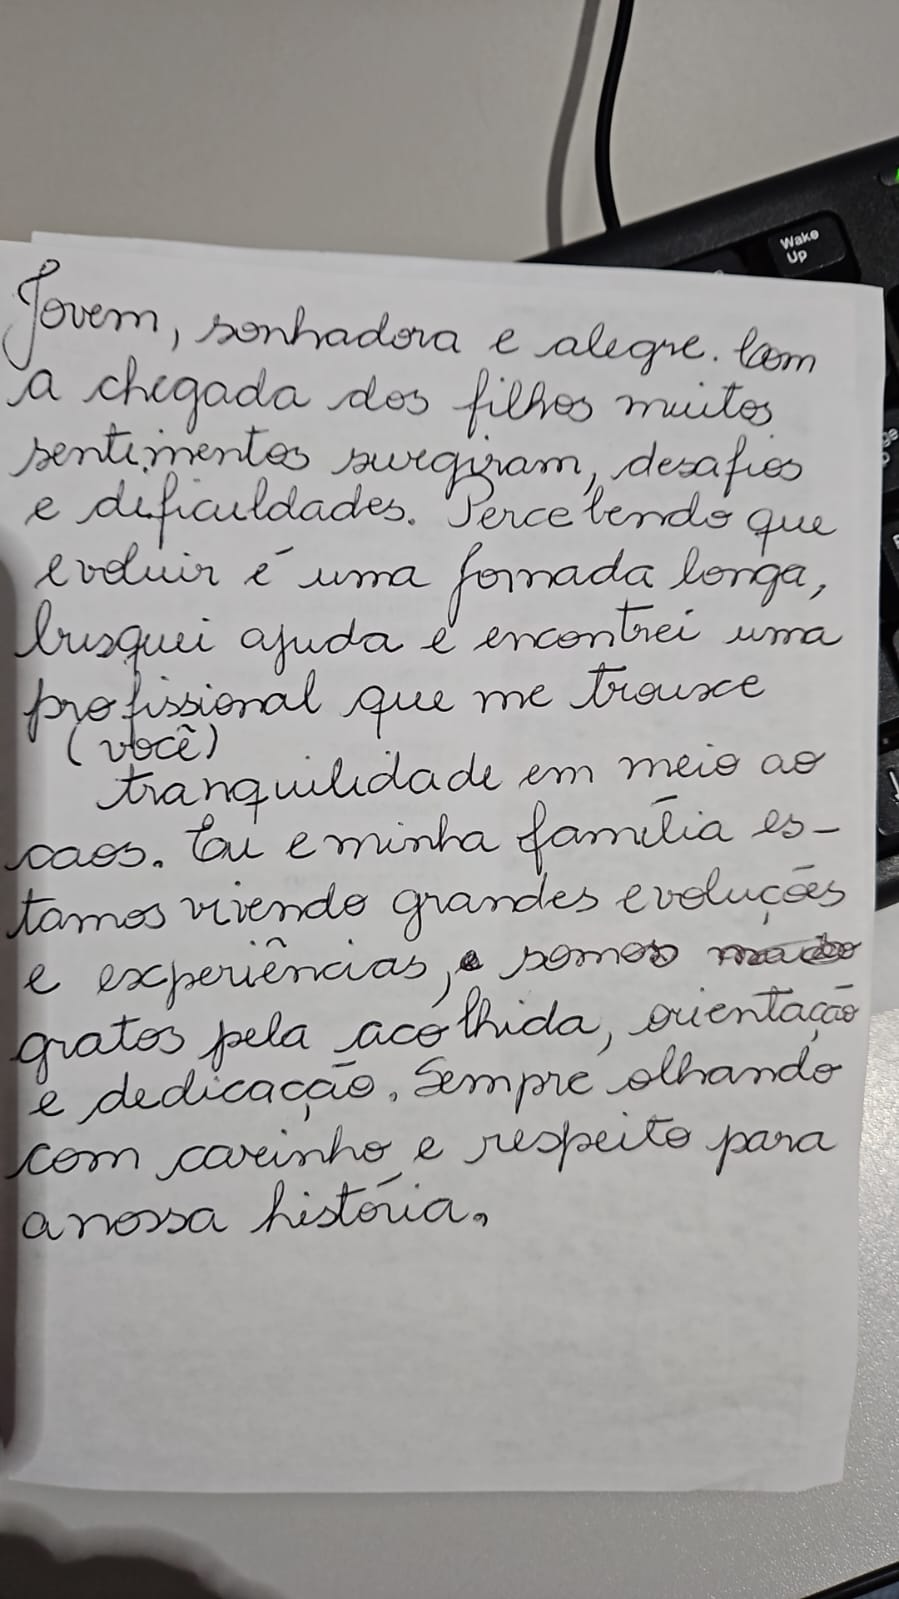 Wake
Up
Jovem, sonhadora e alegre. Com
a chegada dos filhos muitos
sentimentos surgiram, desafios
e dificuldades. Percebendo que
evoluir é uma jornada longa,
busquei ajuda e encontrei uma
profissional que me trouxe
(você)
tranquilidade em meio ao
caos. Eu e minha família es-
tamos vivendo grandes evoluções
e experiências, e somos
gratos pela acolhida, orientação
e dedicação. Sempre olhando
com carinho e respeito para
a nossa história.